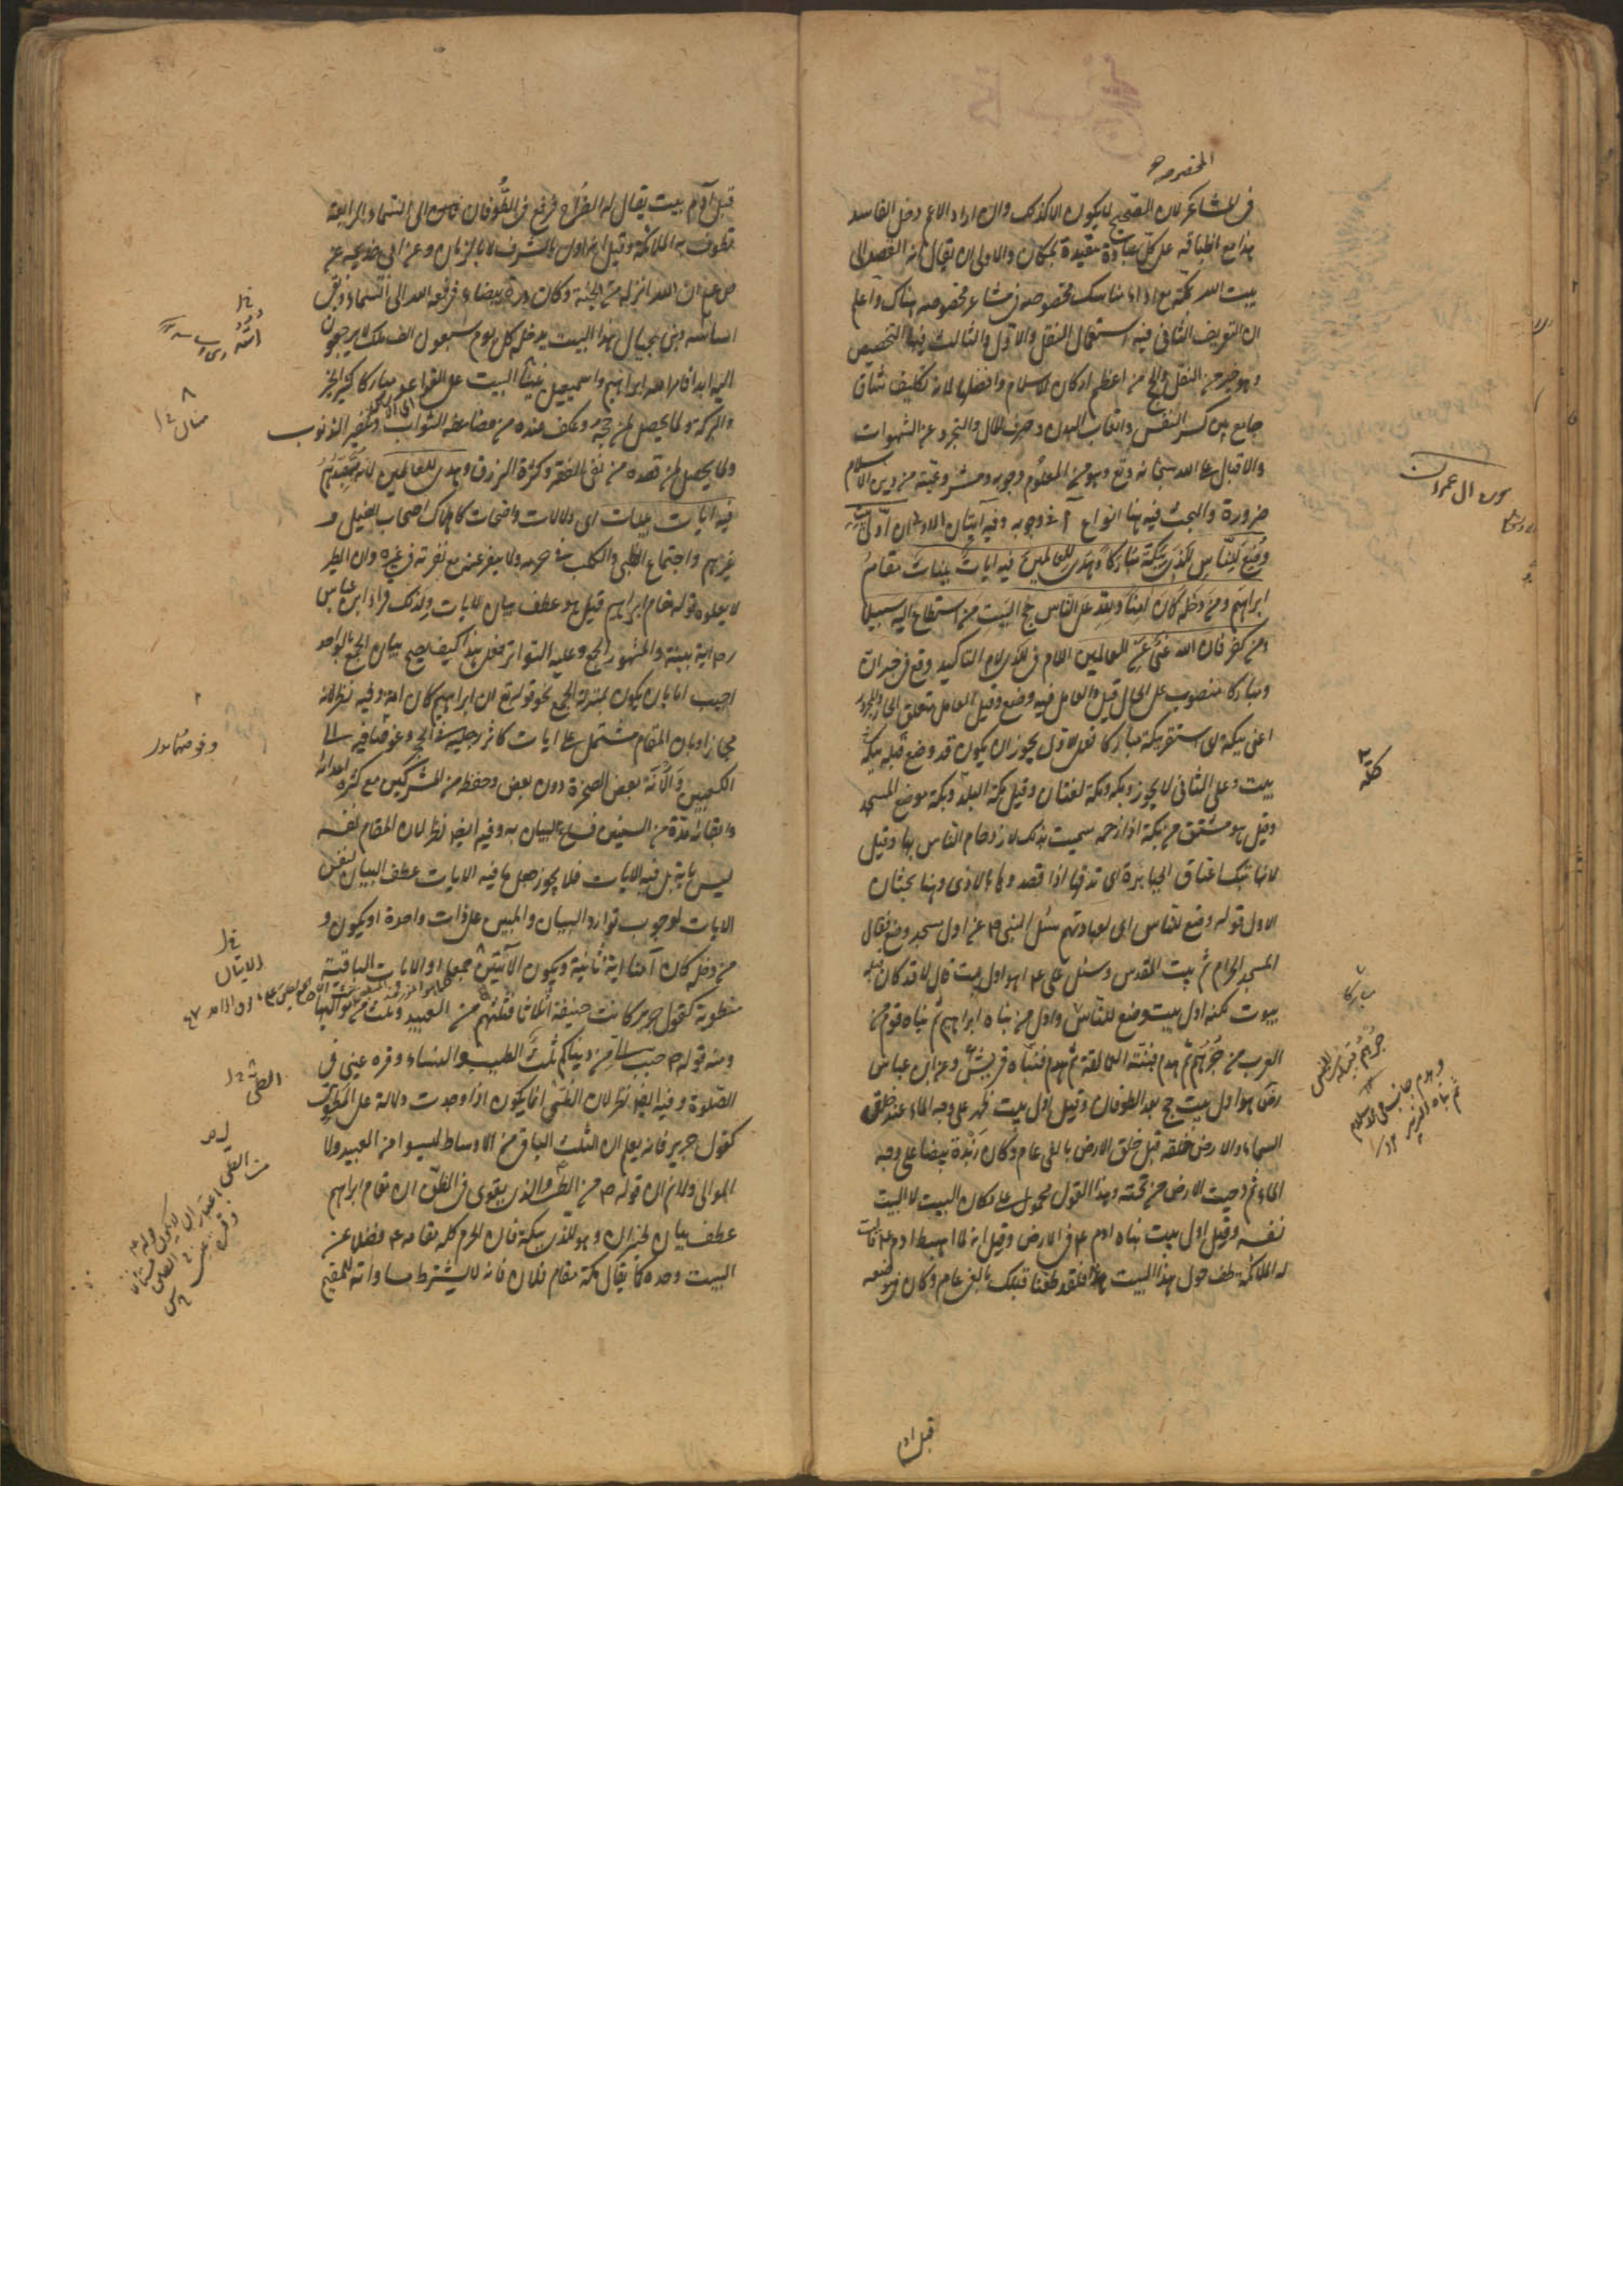 المخصوصة
في المشاعر لان الصحيح لا يكون الا كذلك وان اراد الاعم دخل الفاسد
هذا مع انطباقه على كل عبادة مقيدة بمكان والاولى ان يقال انه القصد الى
بيت الله بمكة مع اداء مناسك مخصوصة في مشاعر مخصوصة هناك واعلم
ان التعريف الثاني فيه استعمال النقل والاول والثالث فيهما التخصيص
وهو خير من النقل والحج من اعظم اركان الاسلام وافضلها لانه تكليف شاق
جامع بين كسر النفس واتعاب البدن وصرف المال والتجرد عن الشهوات
والاقبال على الله سبحانه وتع وهو من المعلوم وجوبه ومشروعيته من دين الاسلام
ضرورة والبحث فيه هنا انواع آ في وجوبه وفيه آيتان الاولى ان اول بيت
وضع للناس للذي ببكة مباركا وهدى للعالمين فيه ايات بينات مقام
ابراهيم ومن دخله كان امنا ولله على الناس حج البيت من استطاع اليه سبيلا
ومن كفر فان الله غني عن العالمين اللام في للذي لام التاكيد وقع في خبر ان
ومباركا منصوب على الحال قيل والعامل فيه وضع وقيل العامل متعلق الجار والمجرور
اعني ببكة اي استقر ببكة مباركا فعلى الاول يجوز ان يكون قد وضع قبله ببكة
بيت وعلى الثاني لا يجوز وبكة ومكة لغتان وقيل مكة البلد وبكة موضع المسجد
وقيل هو مشتق من بكة اذا زحمه سميت بذلك لازدحام الناس بها وقيل
لانها تبك اعناق الجبابرة اي تدقها اذا قصدوها بالاذى وهنا بحثان
الاول قوله وضع للناس اي لعبادتهم سئل النبي عن اول مسجد وضع فقال
المسجد الحرام ثم بيت المقدس وسئل علي ع اهو اول بيت قال لا قد كان قبله
بيوت لكنه اول بيت وضع للناس واول من بناه ابراهيم ثم بناه قوم من
العرب من جرهم ثم هدم فبنته العمالقة ثم هدم فبناه قريش وعن ابن عباس
رض هو اول بيت حج بعد الطوفان وقيل اول بيت ظهر على وجه الماء عند خلق
السماء والارض خلقه قبل خلق الارض بالفي عام وكان زبدة بيضا على وجه
الماء ثم دحيت الارض من تحته وهذا القول محمول على مكان البيت لا البيت
نفسه وقيل اول بيت بناه ادم ع في الارض وقيل انه لما اهبط ادم ع قالت
له الملائكة طف حول هذا البيت فلقد طفنا قبلك بالفي عام وكان في موضعه
قبل ادم
سورة ال عمران
قبل آدم بيت يقال له الضراح فرفع في الطوفان الى السماء الرابعة
تطوف به الملائكة وقيل انه اول بالشرف لا بالزمان وعن ابي خديجة عن
ص ع ان الله انزله من الجنة وكان درة بيضاء فرفعه الله الى السماء وبقى
اساسه وبنى بحيال هذا البيت يدخله كل يوم سبعون الف ملك لا يرجعون
اليه ابدا فامر الله ابراهيم واسمعيل ببنيان البيت على القواعد مباركا كثير الخير
والبركة لما يحصل لمن حجه وعكف عنده من مضاعفة الثواب وتكفير الذنوب
ولما يحصل لمن قصده من نفي الفقر وكثرة الرزق وهدى للعالمين لانه متعبدهم
فيه ايات بينات اي دلالات واضحات كاهلاك اصحاب الفيل و
غيرهم واجتماع الظبي والكلب في حرمه ولا ينفر عنه مع نفرته في غيره وان الطير
لا يعلوه قوله مقام ابراهيم قيل هو عطف بيان لايات ولذلك قرا ابن عباس
رض اية بينة والمشهور الجمع وعليه التواتر فعلى هذا كيف يصح بيان الجمع بالواحد
اجيب اما بان يكون بمنزلة الجمع نحو قوله تع ان ابراهيم كان امة وفيه نظر لانه
مجاز او بان المقام مشتمل على ايات كاثر رجليه في الحجر وغوصهما فيه الى
الكعبين والانة بعض الصخرة دون بعض وحفظه من المشركين مع كثرة اعدائه
وابقائه مدة من السنين فساغ البيان به وفيه ايضا نظر لان المقام نفسه
ليس باية بل فيه الايات فلا يجوز جعل ما فيه الايات عطف البيان لنفس
الايات لوجوب توارد البيان والمبين على ذات واحدة او يكون و
من دخله كان آمنا اية ثانية ويكون الآيتين جمعا او الايات الباقية
مطوية كقول جرير كانت حنيفة اثلاثا فثلثهم من العبيد وثلث من مواليها
ومنه قوله ص حبب الي من دنياكم ثلث الطيب والنساء وقرة عيني في
الصلوة وفيه ايضا نظر لان الطي انما يكون اذا وجدت دلالة على المطوي
كقول جرير فانه يعلم ان الثلث الباقي من الاوساط ليسوا من العبيد ولا
الموالي ولانم ان قوله ص من الطي والذي يقوى في الظن ان مقام ابراهيم
عطف بيان لخبر ان وهو للذي ببكة فان الحرم كله مقامه ع فضلا عن
البيت وحده كما يقال مكة مقام فلان فانه لا يشترط مساواته للمقيم